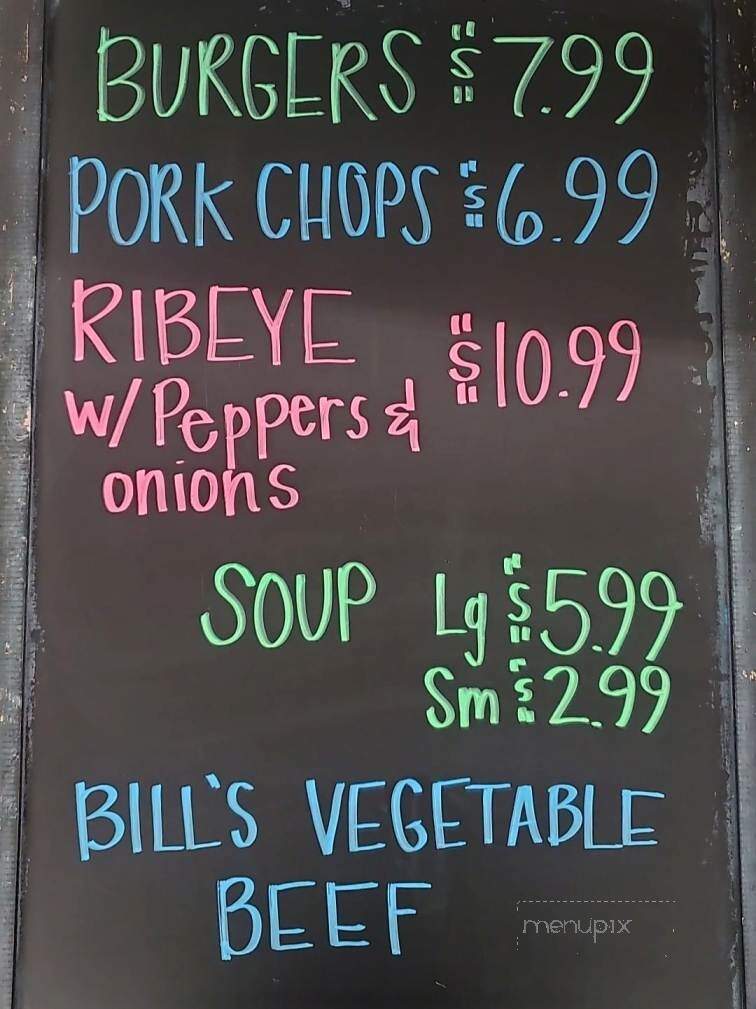 BURGERS $7.99
PORK CHOPS $6.99
RIBEYE $10.99
w/ Peppers &
onions
SOUP Lg $5.99
Sm $2.99
BILL'S VEGETABLE
BEEF
menupix